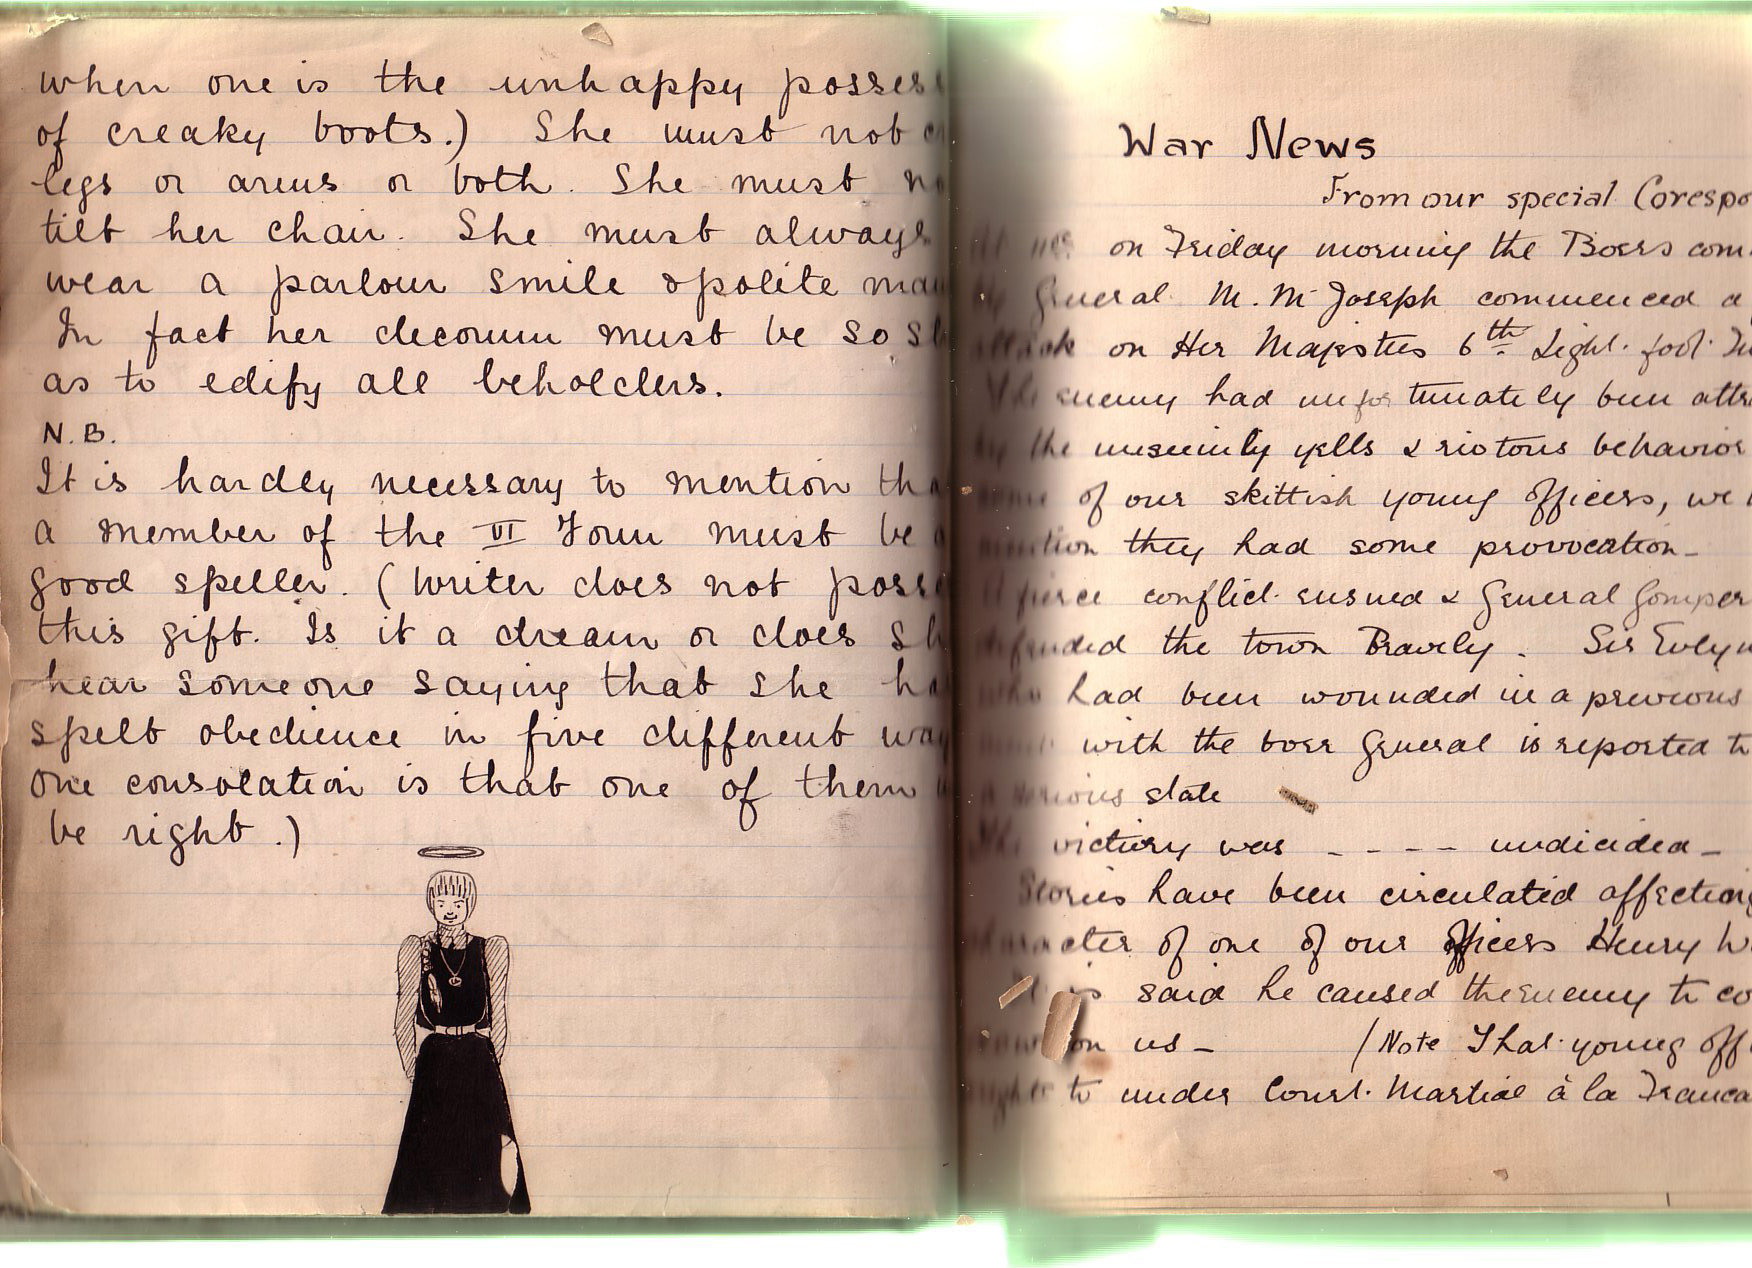 when one is the unhappy possess
of creaky boots.) She must not
legs or arms or both. She must no
tilt her chair. She must always
wear a parlour smile & polite man
In fact her decorum must be so
as to edify all beholders.
N.B.
It is hardly necessary to mention tha
a member of the VI Form must be a
good speller. (Writer does not posse
this gift. Is it a dream or does sh
hear someone saying that she ha
spelt obedience in five different way
One consolation is that one of them
be right.)
War News
From our special Corespo
on Friday morning the Boers com
General M. M. Joseph commenced a
attack on Her Majesties 6th Light foot In
The enemy had unfortunately been attra
by the unseemly yells & riotous behavior
some of our skittish young officers, we
mention they had some provocation_
A fierce conflict ensued & General Gomper
defended the town Bravely. Sir Evelyn
who had been wounded in a previous
with the boer General is reported to
a serious state
The victory was _ _ _ _ undicided_
Stories have been circulated affecting
character of one of our officers Henry W
It is said he caused the enemy to co
down on us_ (Note That young off
ought to under Court Martial à la Franca